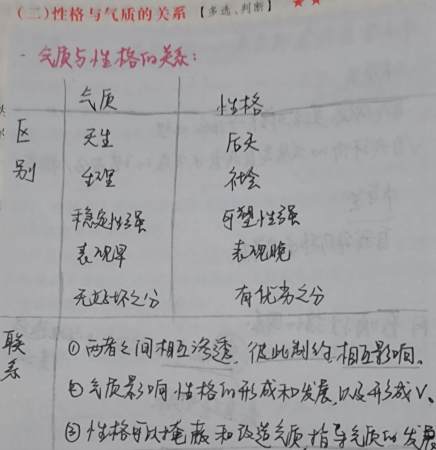 (二)性格与气质的关系【多选、判断】 ★★
- 气质与性格的关系:
气质 性格
区别 天生 后天
生理 社会
稳定性强 可塑性强
表现早 表现晚
无好坏之分 有优劣之分
联系 ①两者之间相互渗透,彼此制约相互影响。
②气质影响性格的形成和发展,以及形成V。
③性格可以掩蔽和改造气质,指导气质的发展